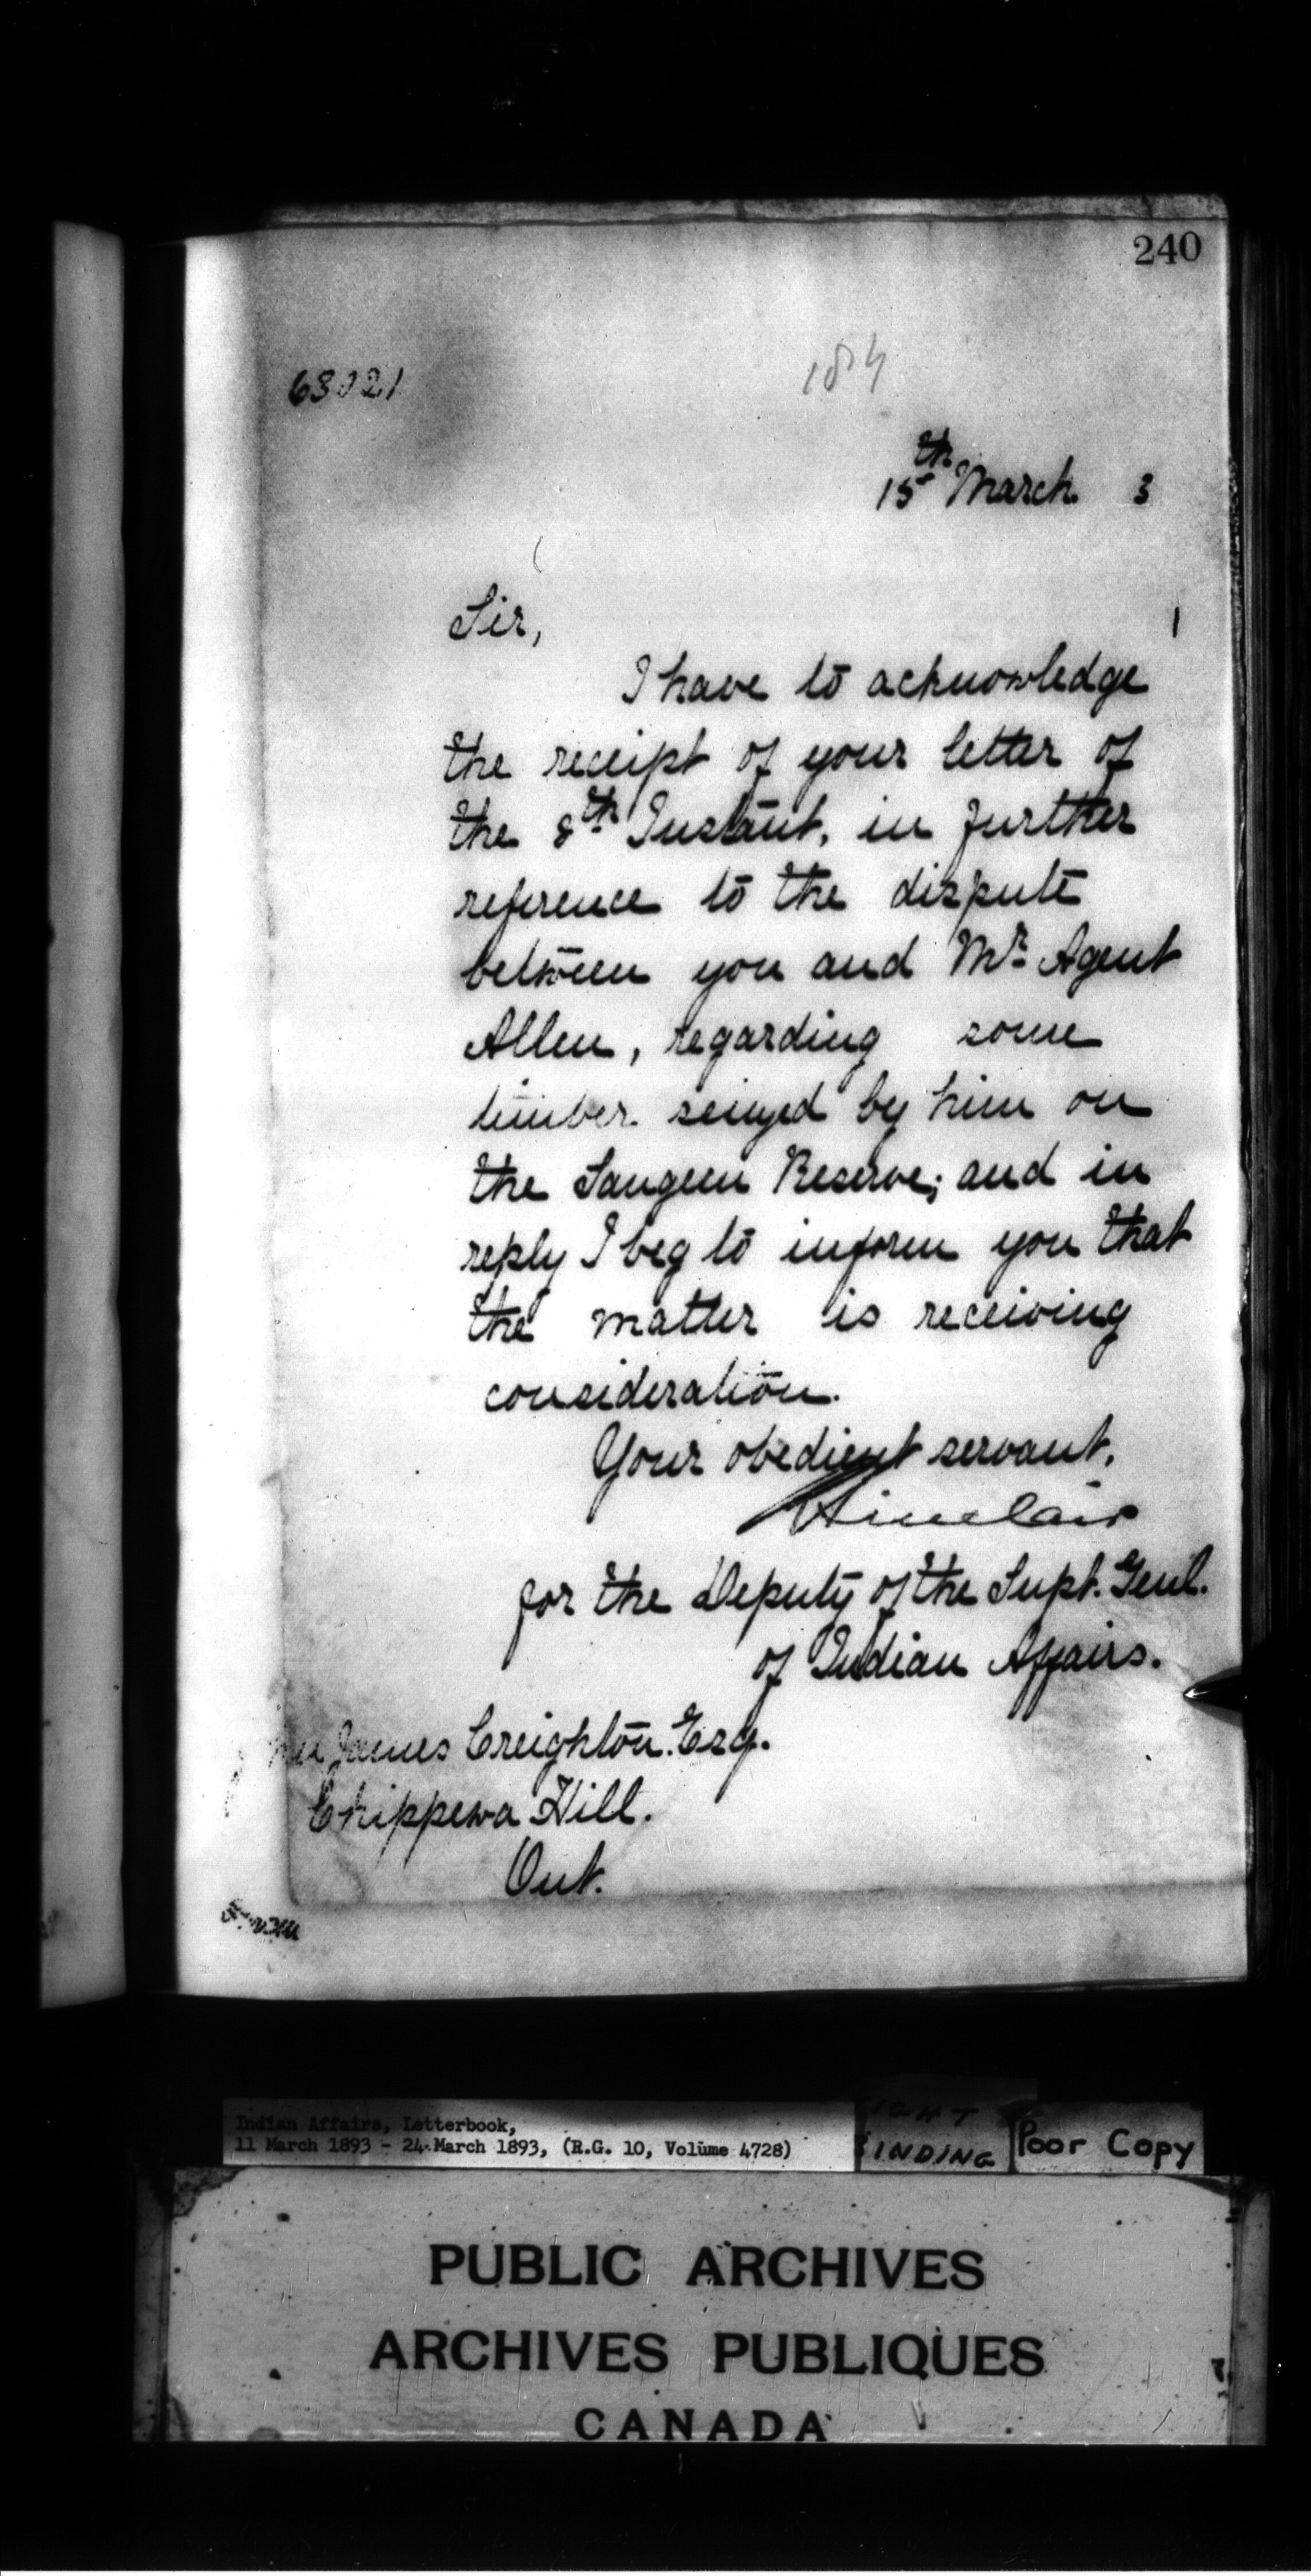 240
63021
184
15th March. 3
Sir,
I have to acknowledge
the receipt of your letter of
the 8th Instant, in further
reference to the dispute
between you and Mr. Agent
Allen, regarding some
timber seized by him on
the Saugeen Reserve; and in
reply I beg to inform you that
the matter is receiving
consideration.
Your obedient servant,
Sinclair
for the Deputy of the Supt. Genl.
of Indian Affairs.
James Creighton. Esq.
Chippewa Hill.
Ont.
Indian Affairs, Letterbook,
11 March 1893 - 24 March 1893, (R.G. 10, Volume 4728)
BINDING
Poor Copy
PUBLIC ARCHIVES
ARCHIVES PUBLIQUES
CANADA